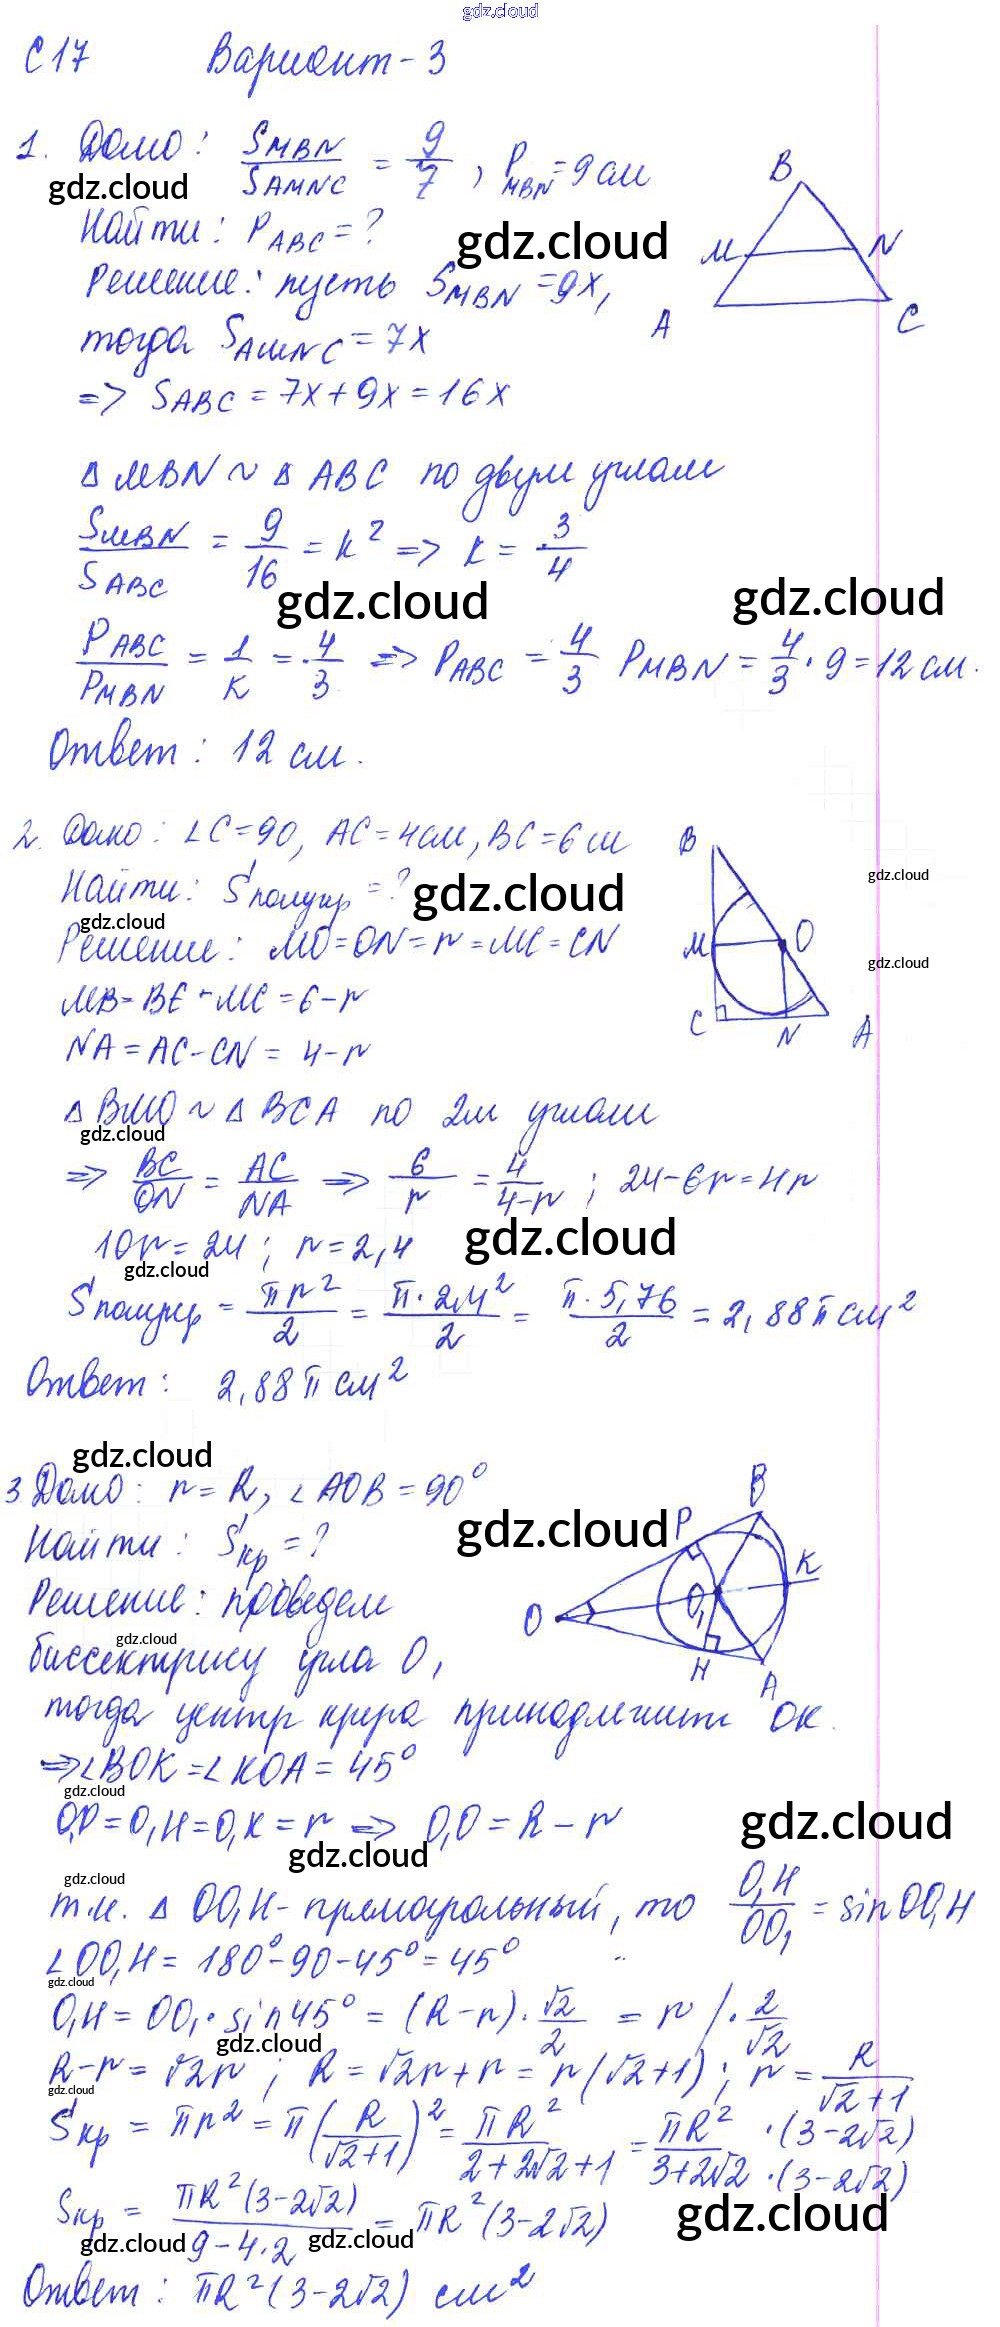 gdz.cloud
С17 Вариант-3
1. Дано: S MBN / S AMNC = 9/7, P MBN = 9 см
gdz.cloud
Найти: P ABC = ?
gdz.cloud
B
M N
A C
Решение: пусть S MBN = 9x,
тогда S AMNC = 7x
=> S ABC = 7x + 9x = 16x
Δ MBN ~ Δ ABC по двум углам
S MBN / S ABC = 9/16 = k² => k = 3/4
gdz.cloud
gdz.cloud
P ABC / P MBN = 1/k = 4/3 => P ABC = 4/3 P MBN = 4/3 · 9 = 12 см.
Ответ: 12 см.
2. Дано: ∠C = 90, AC = 4 см, BC = 6 см
Найти: S полукр = ?
gdz.cloud
gdz.cloud
gdz.cloud
gdz.cloud
B
M O
C N A
Решение: MO = ON = r = MC = CN
MB = BC - MC = 6 - r
NA = AC - CN = 4 - r
Δ BMO ~ Δ BCA по 2м углам
gdz.cloud
=> BC/ON = AC/NA => 6/r = 4/4-r ; 24 - 6r = 4r
10r = 24 ; r = 2,4
gdz.cloud
gdz.cloud
S полукр = πr²/2 = π · 2,4²/2 = π · 5,76/2 = 2,88π см²
Ответ: 2,88π см²
gdz.cloud
3. Дано: r = R, ∠AOB = 90°
gdz.cloud
Найти: S кр = ?
B
P K
O O₁
H A
Решение: проведем
gdz.cloud
биссектрису угла O,
тогда центр круга принадлежит OK.
=> ∠BOK = ∠KOA = 45°
gdz.cloud
O₁P = O₁H = O₁K = r => O₁O = R - r
gdz.cloud
gdz.cloud
gdz.cloud
т.к. Δ OO₁H - прямоугольный, то O₁H/OO₁ = sin OO₁H
∠OO₁H = 180° - 90 - 45° = 45°
gdz.cloud
O₁H = OO₁ · sin 45° = (R - r) · √2/2 = r / · 2/√2
gdz.cloud
R - r = √2r ; R = √2r + r = r(√2 + 1) ; r = R/√2+1
gdz.cloud
S кр = πr² = π(R/√2+1)² = πR²/2+2√2+1 = πR²/3+2√2 · (3-2√2) / · (3-2√2)
S кр = πR²(3-2√2)/9-4·2 = πR²(3-2√2)
gdz.cloud
gdz.cloud gdz.cloud
Ответ: πR²(3-2√2) см²